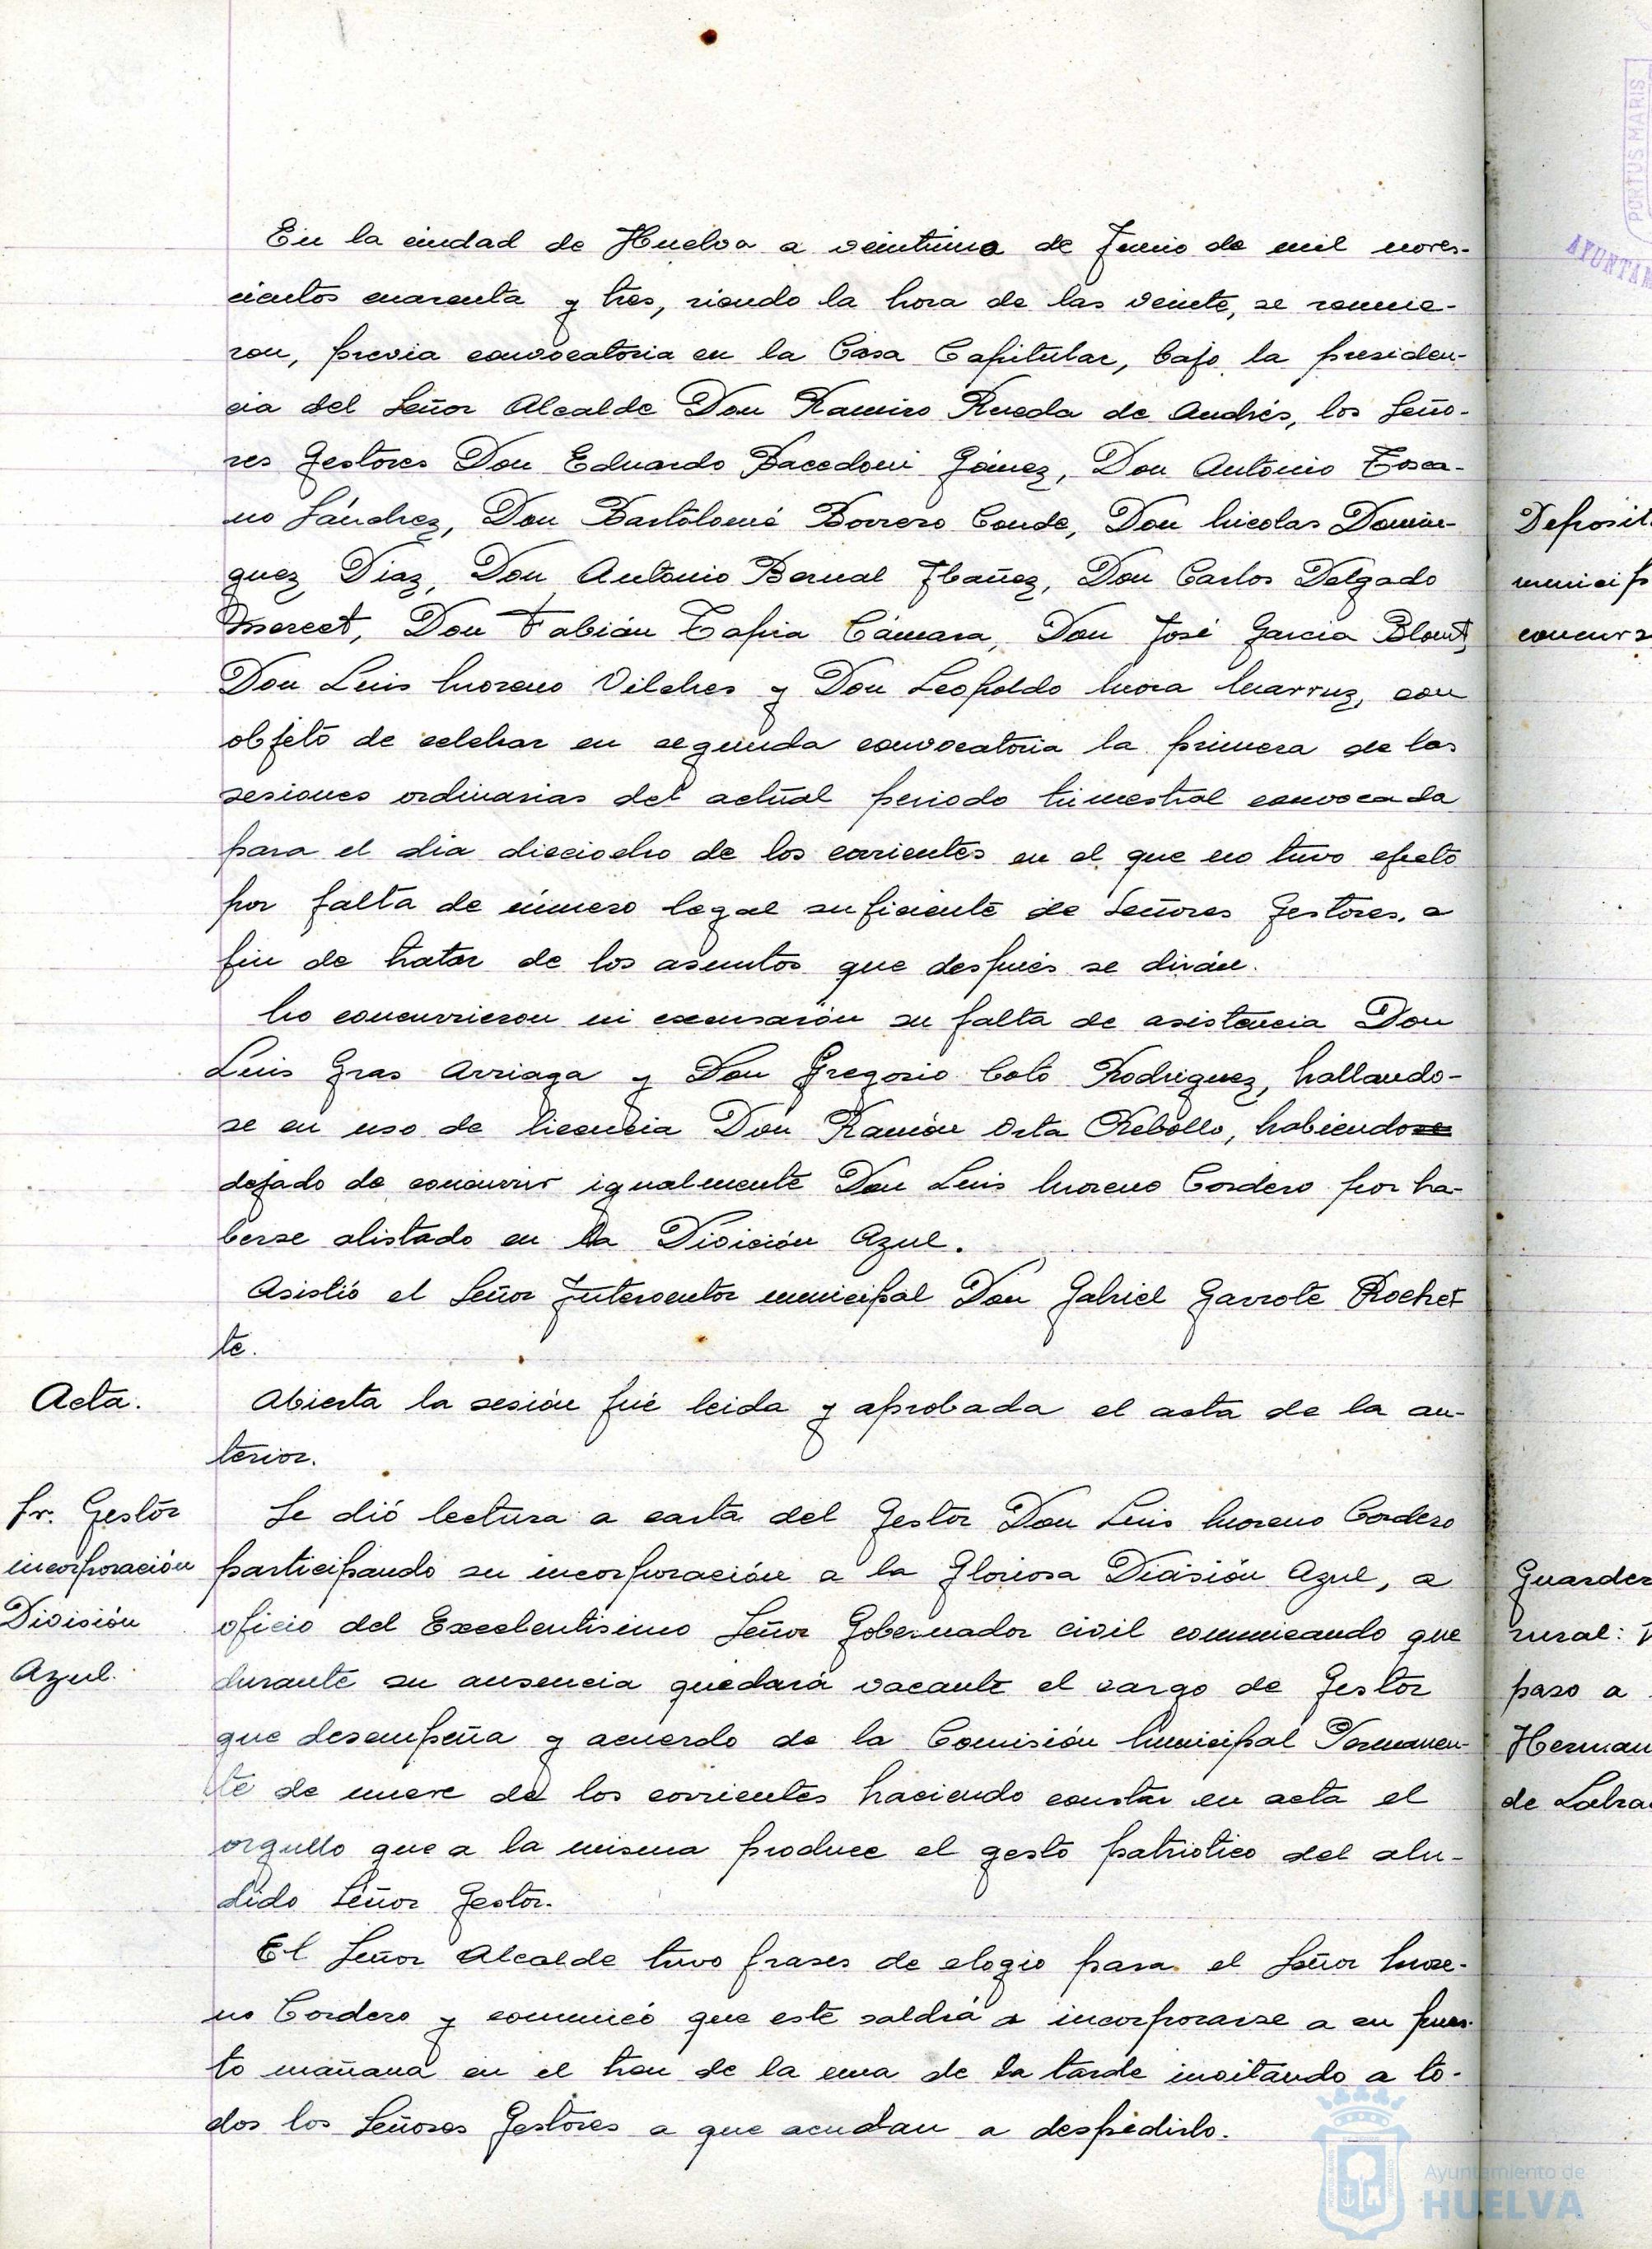 En la ciudad de Huelva a veintiuno de Junio de mil noves-
cientos cuarenta y tres, siendo la hora de las veinte, se reunie-
ron, previa convocatoria en la Casa Capitular, bajo la presiden-
cia del Señor Alcalde Don Ramiro Rueda de Andrés, los Seño-
res Gestores Don Eduardo Bacedoni Gómez, Don Antonio Tosca-
no Sánchez, Don Bartolomé Borrero Conde, Don Nicolas Domín-
guez Díaz, Don Antonio Bernal Ibañez, Don Carlos Delgado
Mercet, Don Fabián Tapia Cámara, Don José García Blount,
Don Luis Moreno Vilches y Don Leopoldo Mora Marruz, con
objeto de celebar en segunda convocatoria la primera de las
sesiones ordinarias del actual periodo trimestral convocada
para el día dieciocho de los corrientes en el que no tuvo efecto
por falta de número legal suficiente de Señores Gestores, a
fin de tratar de los asuntos que después se dirán.
No concurrieron ni excusarón su falta de asistencia Don
Luis Gras Arriaga y Don Gregorio Coto Rodriguez, hallando-
se en uso de licencia Don Ramón Orta Rebollo, habiendose
dejado de concurrir igualmente Don Luis Moreno Cordero por ha-
berse alistado en la División Azul.
Asistió el Señor Interventor municipal Don Gabriel Garrote Rochet-
te.
Acta.
Abierta la sesión fué leida y aprobada el acta de la an-
terior.
Sr. Gestor
incorporación
División
Azul.
Se dió lectura a carta del Gestor Don Luis Moreno Cordero
participando su incorporación a la Gloriosa División Azul, a
oficio del Excelentisimo Señor Gobernador civil comunicando que
durante su ausencia quedará vacante el cargo de Gestor
que desempeña y acuerdo de la Comisión Municipal Permanen-
te de nueve de los corrientes haciendo constar en acta el
orgullo que a la misma produce el gesto patriotico del alu-
dido Señor Gestor.
El Señor Alcalde tuvo frases de elogio para el Señor More-
no Cordero y comunicó que este saldrá a incorporarse a su pues-
to mañana en el tren de la una de la tarde invitando a to-
dos los Señores Gestores a que acudan a despedirlo.
Deposit
municip
concurs
Guarder
rural:
paso a
Herman
de Labra
PORTUS MARIS
AYUNTAM
Ayuntamiento de
HUELVA